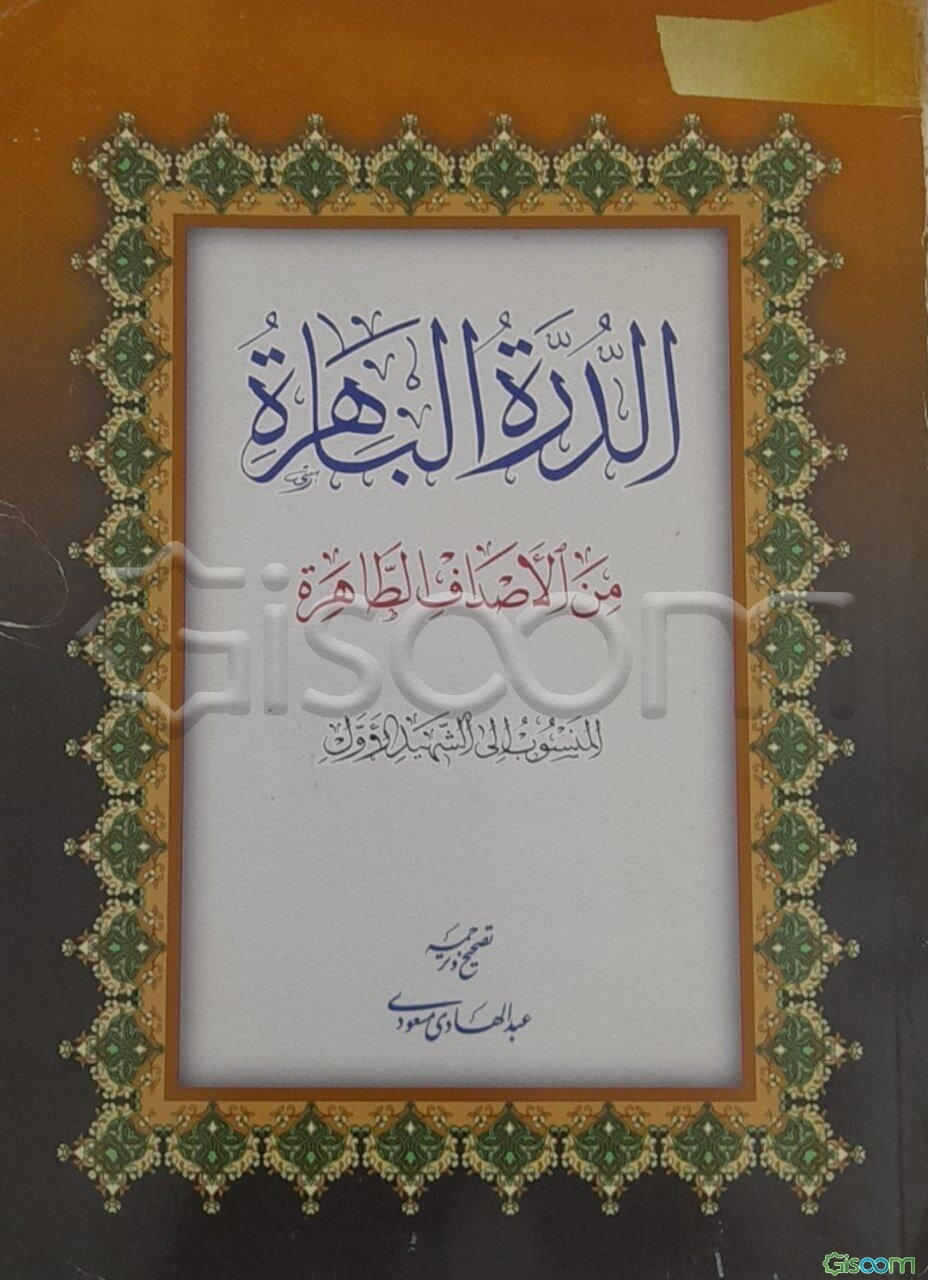 الدُّرَّةُ البَاهِرَةُ
مِنَ الأَصْدَافِ الطَّاهِرَةِ
المَنسُوبُ إِلَى الشَّهِيدِ الأَوَّلِ
تصحیح و ترجمه
عبدالهادی مسعودی
Gisoom
Gisoom